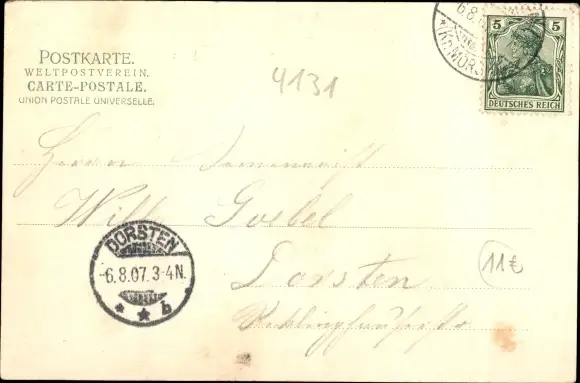 POSTKARTE.
WELTPOSTVEREIN.
CARTE-POSTALE.
UNION POSTALE UNIVERSELLE.
4131
6.8.
(Kr. MÖRS)
5 5
DEUTSCHES REICH
Herrn
Willy Goebel
DORSTEN
-6.8.07.3-4N.
* * b
Dorsten
11€